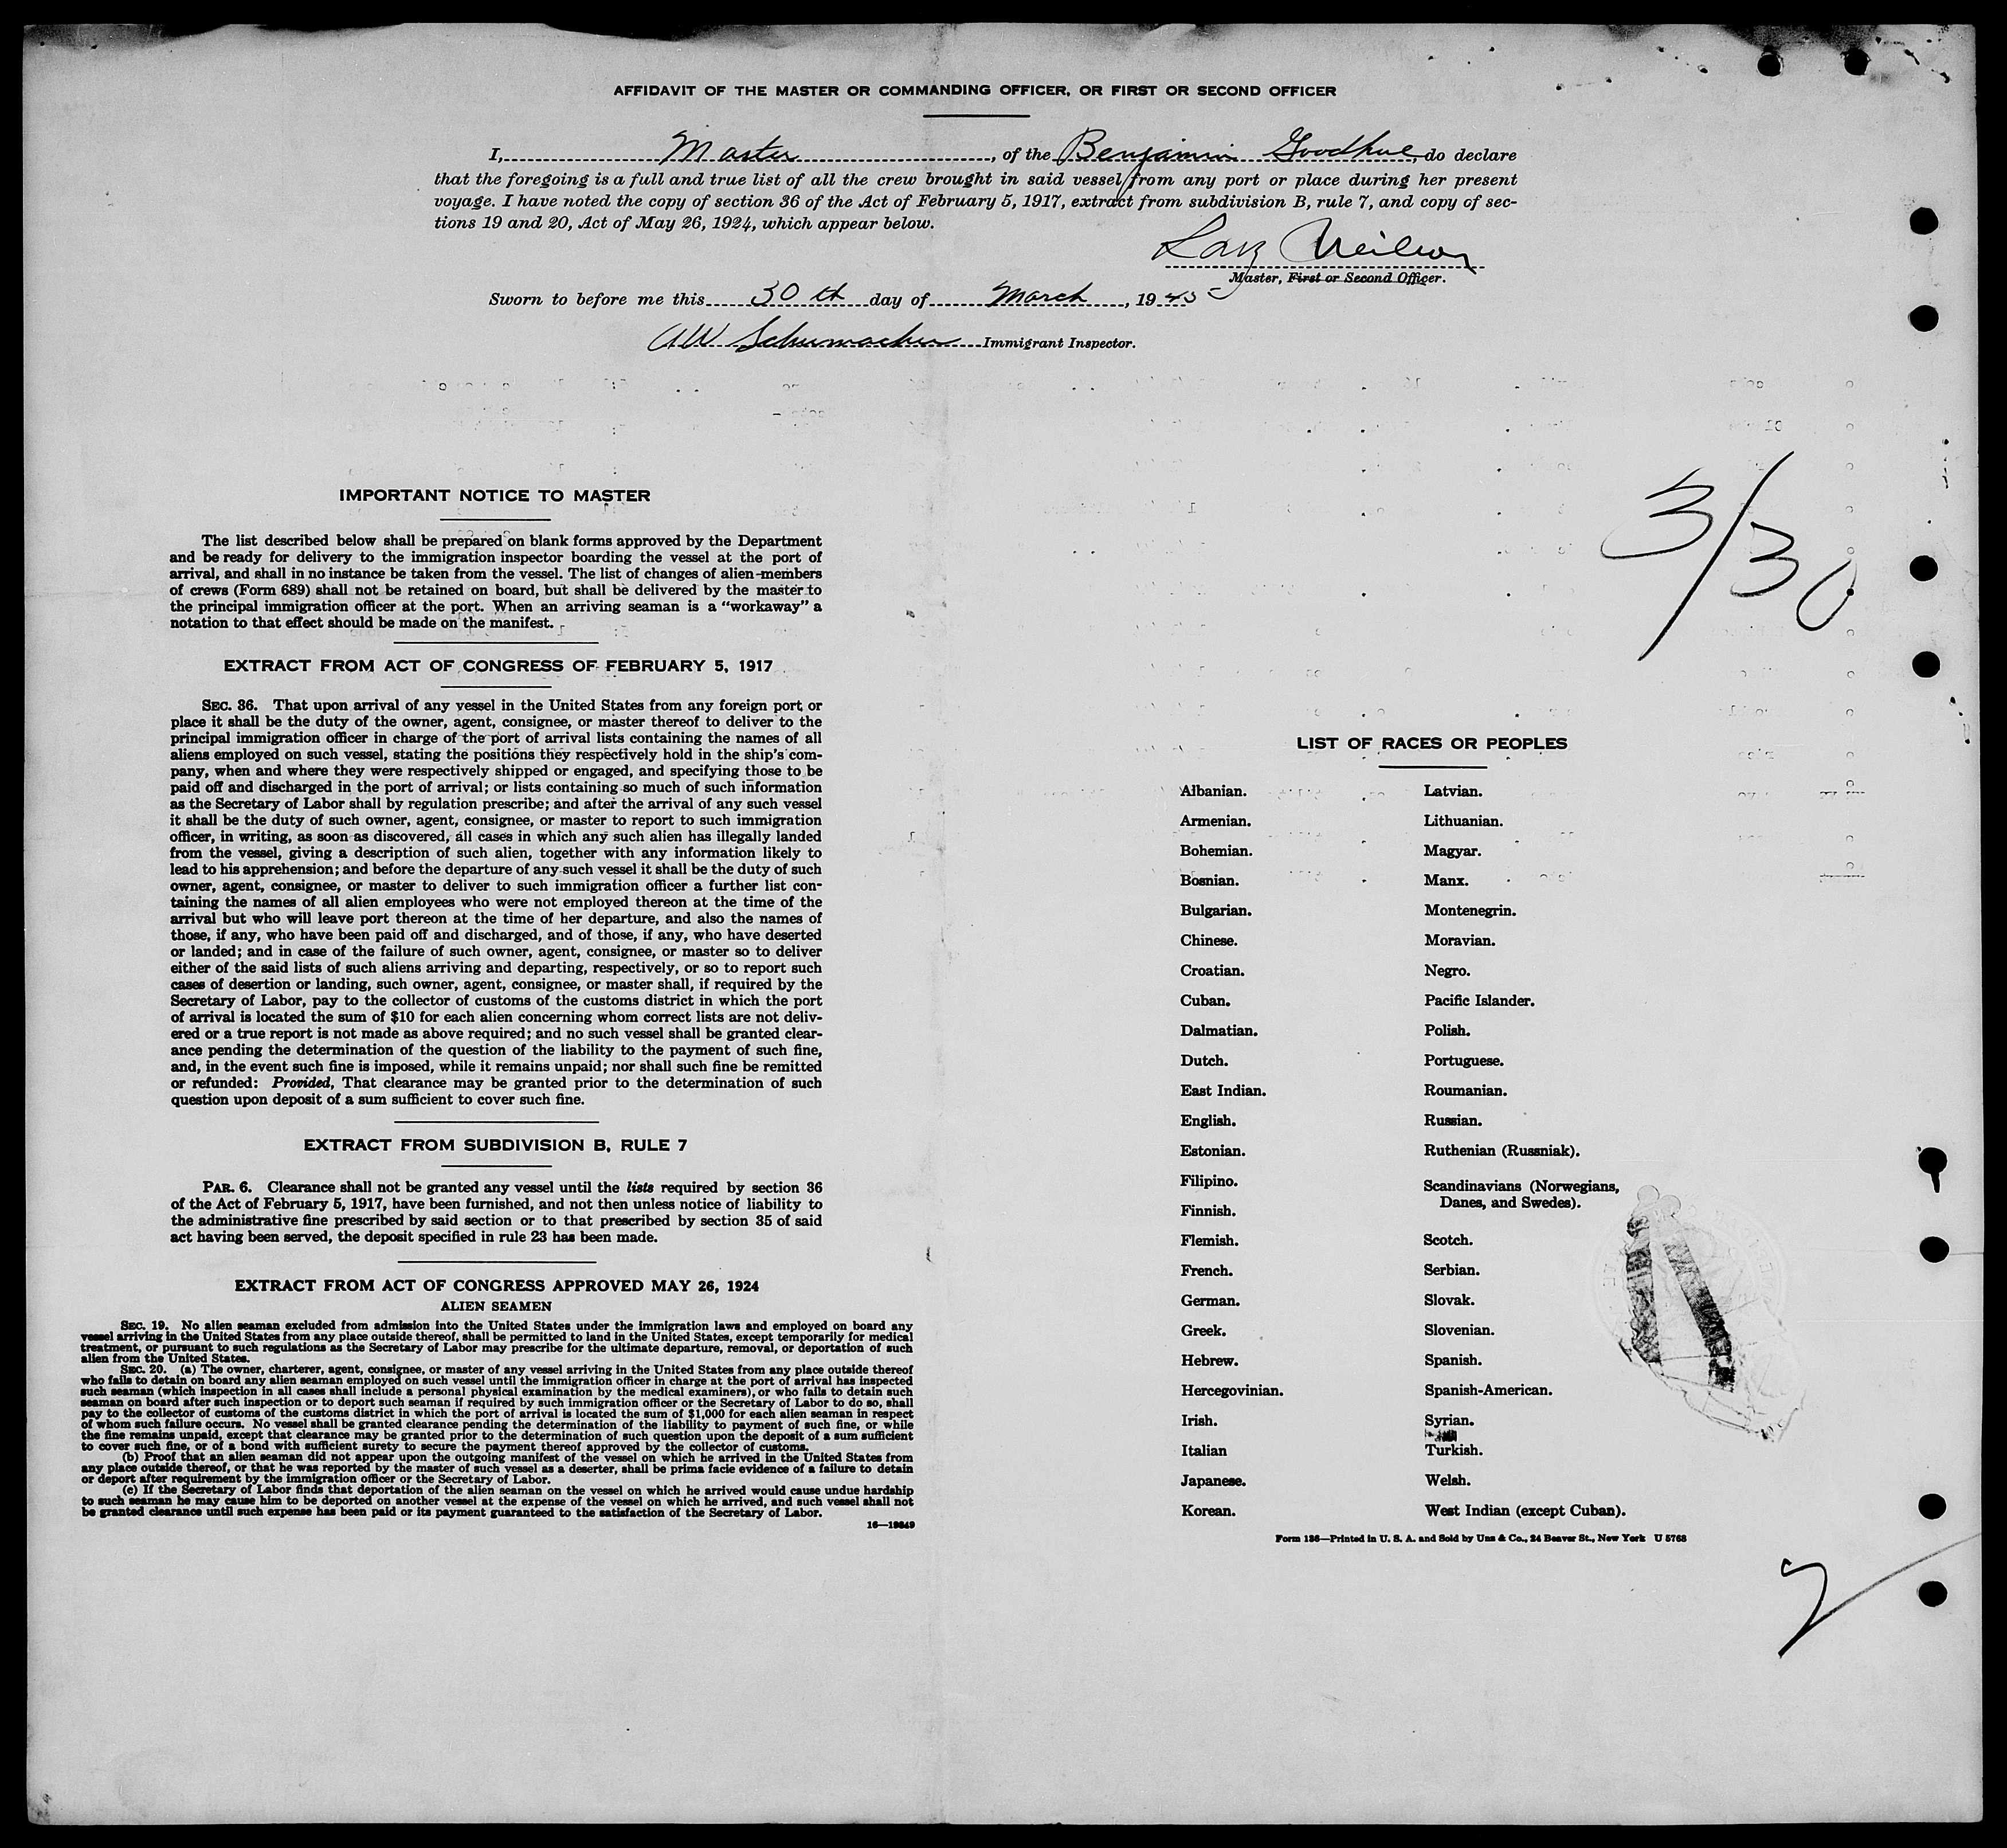 AFFIDAVIT OF THE MASTER OR COMMANDING OFFICER, OR FIRST OR SECOND OFFICER
I, Master, of the Benjamin Goodhue, do declare
that the foregoing is a full and true list of all the crew brought in said vessel from any port or place during her present
voyage. I have noted the copy of section 36 of the Act of February 5, 1917, extract from subdivision B, rule 7, and copy of sec-
tions 19 and 20, Act of May 26, 1924, which appear below.
Neilson
Master, First or Second Officer.
Sworn to before me this 30th day of March, 1945
AW Schumacher Immigrant Inspector.
3/30
IMPORTANT NOTICE TO MASTER
The list described below shall be prepared on blank forms approved by the Department
and be ready for delivery to the immigration inspector boarding the vessel at the port of
arrival, and shall in no instance be taken from the vessel. The list of changes of alien members
of crews (Form 689) shall not be retained on board, but shall be delivered by the master to
the principal immigration officer at the port. When an arriving seaman is a "workaway" a
notation to that effect should be made on the manifest.
EXTRACT FROM ACT OF CONGRESS OF FEBRUARY 5, 1917
SEC. 36. That upon arrival of any vessel in the United States from any foreign port or
place it shall be the duty of the owner, agent, consignee, or master thereof to deliver to the
principal immigration officer in charge of the port of arrival lists containing the names of all
aliens employed on such vessel, stating the positions they respectively hold in the ship's com-
pany, when and where they were respectively shipped or engaged, and specifying those to be
paid off and discharged in the port of arrival; or lists containing so much of such information
as the Secretary of Labor shall by regulation prescribe; and after the arrival of any such vessel
it shall be the duty of such owner, agent, consignee, or master to report to such immigration
officer, in writing, as soon as discovered, all cases in which any such alien has illegally landed
from the vessel, giving a description of such alien, together with any information likely to
lead to his apprehension; and before the departure of any such vessel it shall be the duty of such
owner, agent, consignee, or master to deliver to such immigration officer a further list con-
taining the names of all alien employees who were not employed thereon at the time of the
arrival but who will leave port thereon at the time of her departure, and also the names of
those, if any, who have been paid off and discharged, and of those, if any, who have deserted
or landed; and in case of the failure of such owner, agent, consignee, or master so to deliver
either of the said lists of such aliens arriving and departing, respectively, or so to report such
cases of desertion or landing, such owner, agent, consignee, or master shall, if required by the
Secretary of Labor, pay to the collector of customs of the customs district in which the port
of arrival is located the sum of $10 for each alien concerning whom correct lists are not deliv-
ered or a true report is not made as above required; and no such vessel shall be granted clear-
ance pending the determination of the question of the liability to the payment of such fine,
and, in the event such fine is imposed, while it remains unpaid; nor shall such fine be remitted
or refunded: Provided, That clearance may be granted prior to the determination of such
question upon deposit of a sum sufficient to cover such fine.
EXTRACT FROM SUBDIVISION B, RULE 7
PAR. 6. Clearance shall not be granted any vessel until the lists required by section 36
of the Act of February 5, 1917, have been furnished, and not then unless notice of liability to
the administrative fine prescribed by said section or to that prescribed by section 35 of said
act having been served, the deposit specified in rule 23 has been made.
EXTRACT FROM ACT OF CONGRESS APPROVED MAY 26, 1924
ALIEN SEAMEN
SEC. 19. No alien seaman excluded from admission into the United States under the immigration laws and employed on board any
vessel arriving in the United States from any place outside thereof, shall be permitted to land in the United States, except temporarily for medical
treatment, or pursuant to such regulations as the Secretary of Labor may prescribe for the ultimate departure, removal, or deportation of such
alien from the United States.
SEC. 20. (a) The owner, charterer, agent, consignee, or master of any vessel arriving in the United States from any place outside thereof
who fails to detain on board any alien seaman employed on such vessel until the immigration officer in charge at the port of arrival has inspected
such seaman (which inspection in all cases shall include a personal physical examination by the medical examiners), or who fails to detain such
seaman on board after such inspection or to deport such seaman if required by such immigration officer or the Secretary of Labor to do so, shall
pay to the collector of customs of the customs district in which the port of arrival is located the sum of $1,000 for each alien seaman in respect
of whom such failure occurs. No vessel shall be granted clearance pending the determination of the liability to payment of such fine, or while
the fine remains unpaid, except that clearance may be granted prior to the determination of such question upon the deposit of a sum sufficient
to cover such fine, or of a bond with sufficient surety to secure the payment thereof approved by the collector of customs.
(b) Proof that an alien seaman did not appear upon the outgoing manifest of the vessel on which he arrived in the United States from
any place outside thereof, or that he was reported by the master of such vessel as a deserter, shall be prima facie evidence of a failure to detain
or deport after requirement by the immigration officer or the Secretary of Labor.
(c) If the Secretary of Labor finds that deportation of the alien seaman on the vessel on which he arrived would cause undue hardship
to such seaman he may cause him to be deported on another vessel at the expense of the vessel on which he arrived, and such vessel shall not
be granted clearance until such expense has been paid or its payment guaranteed to the satisfaction of the Secretary of Labor.
16—19849
LIST OF RACES OR PEOPLES
Albanian.
Armenian.
Bohemian.
Bosnian.
Bulgarian.
Chinese.
Croatian.
Cuban.
Dalmatian.
Dutch.
East Indian.
English.
Estonian.
Filipino.
Finnish.
Flemish.
French.
German.
Greek.
Hebrew.
Hercegovinian.
Irish.
Italian
Japanese.
Korean.
Latvian.
Lithuanian.
Magyar.
Manx.
Montenegrin.
Moravian.
Negro.
Pacific Islander.
Polish.
Portuguese.
Roumanian.
Russian.
Ruthenian (Russniak).
Scandinavians (Norwegians,
Danes, and Swedes).
Scotch.
Serbian.
Slovak.
Slovenian.
Spanish.
Spanish-American.
Syrian.
Turkish.
Welsh.
West Indian (except Cuban).
Form 136—Printed in U. S. A. and Sold by Unz & Co., 24 Beaver St., New York U 5768
2